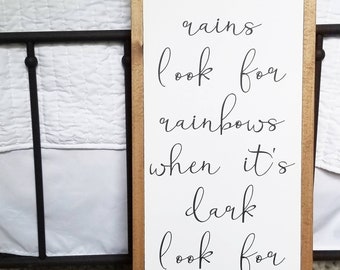 rains
look for
rainbows
when it's
dark
look for